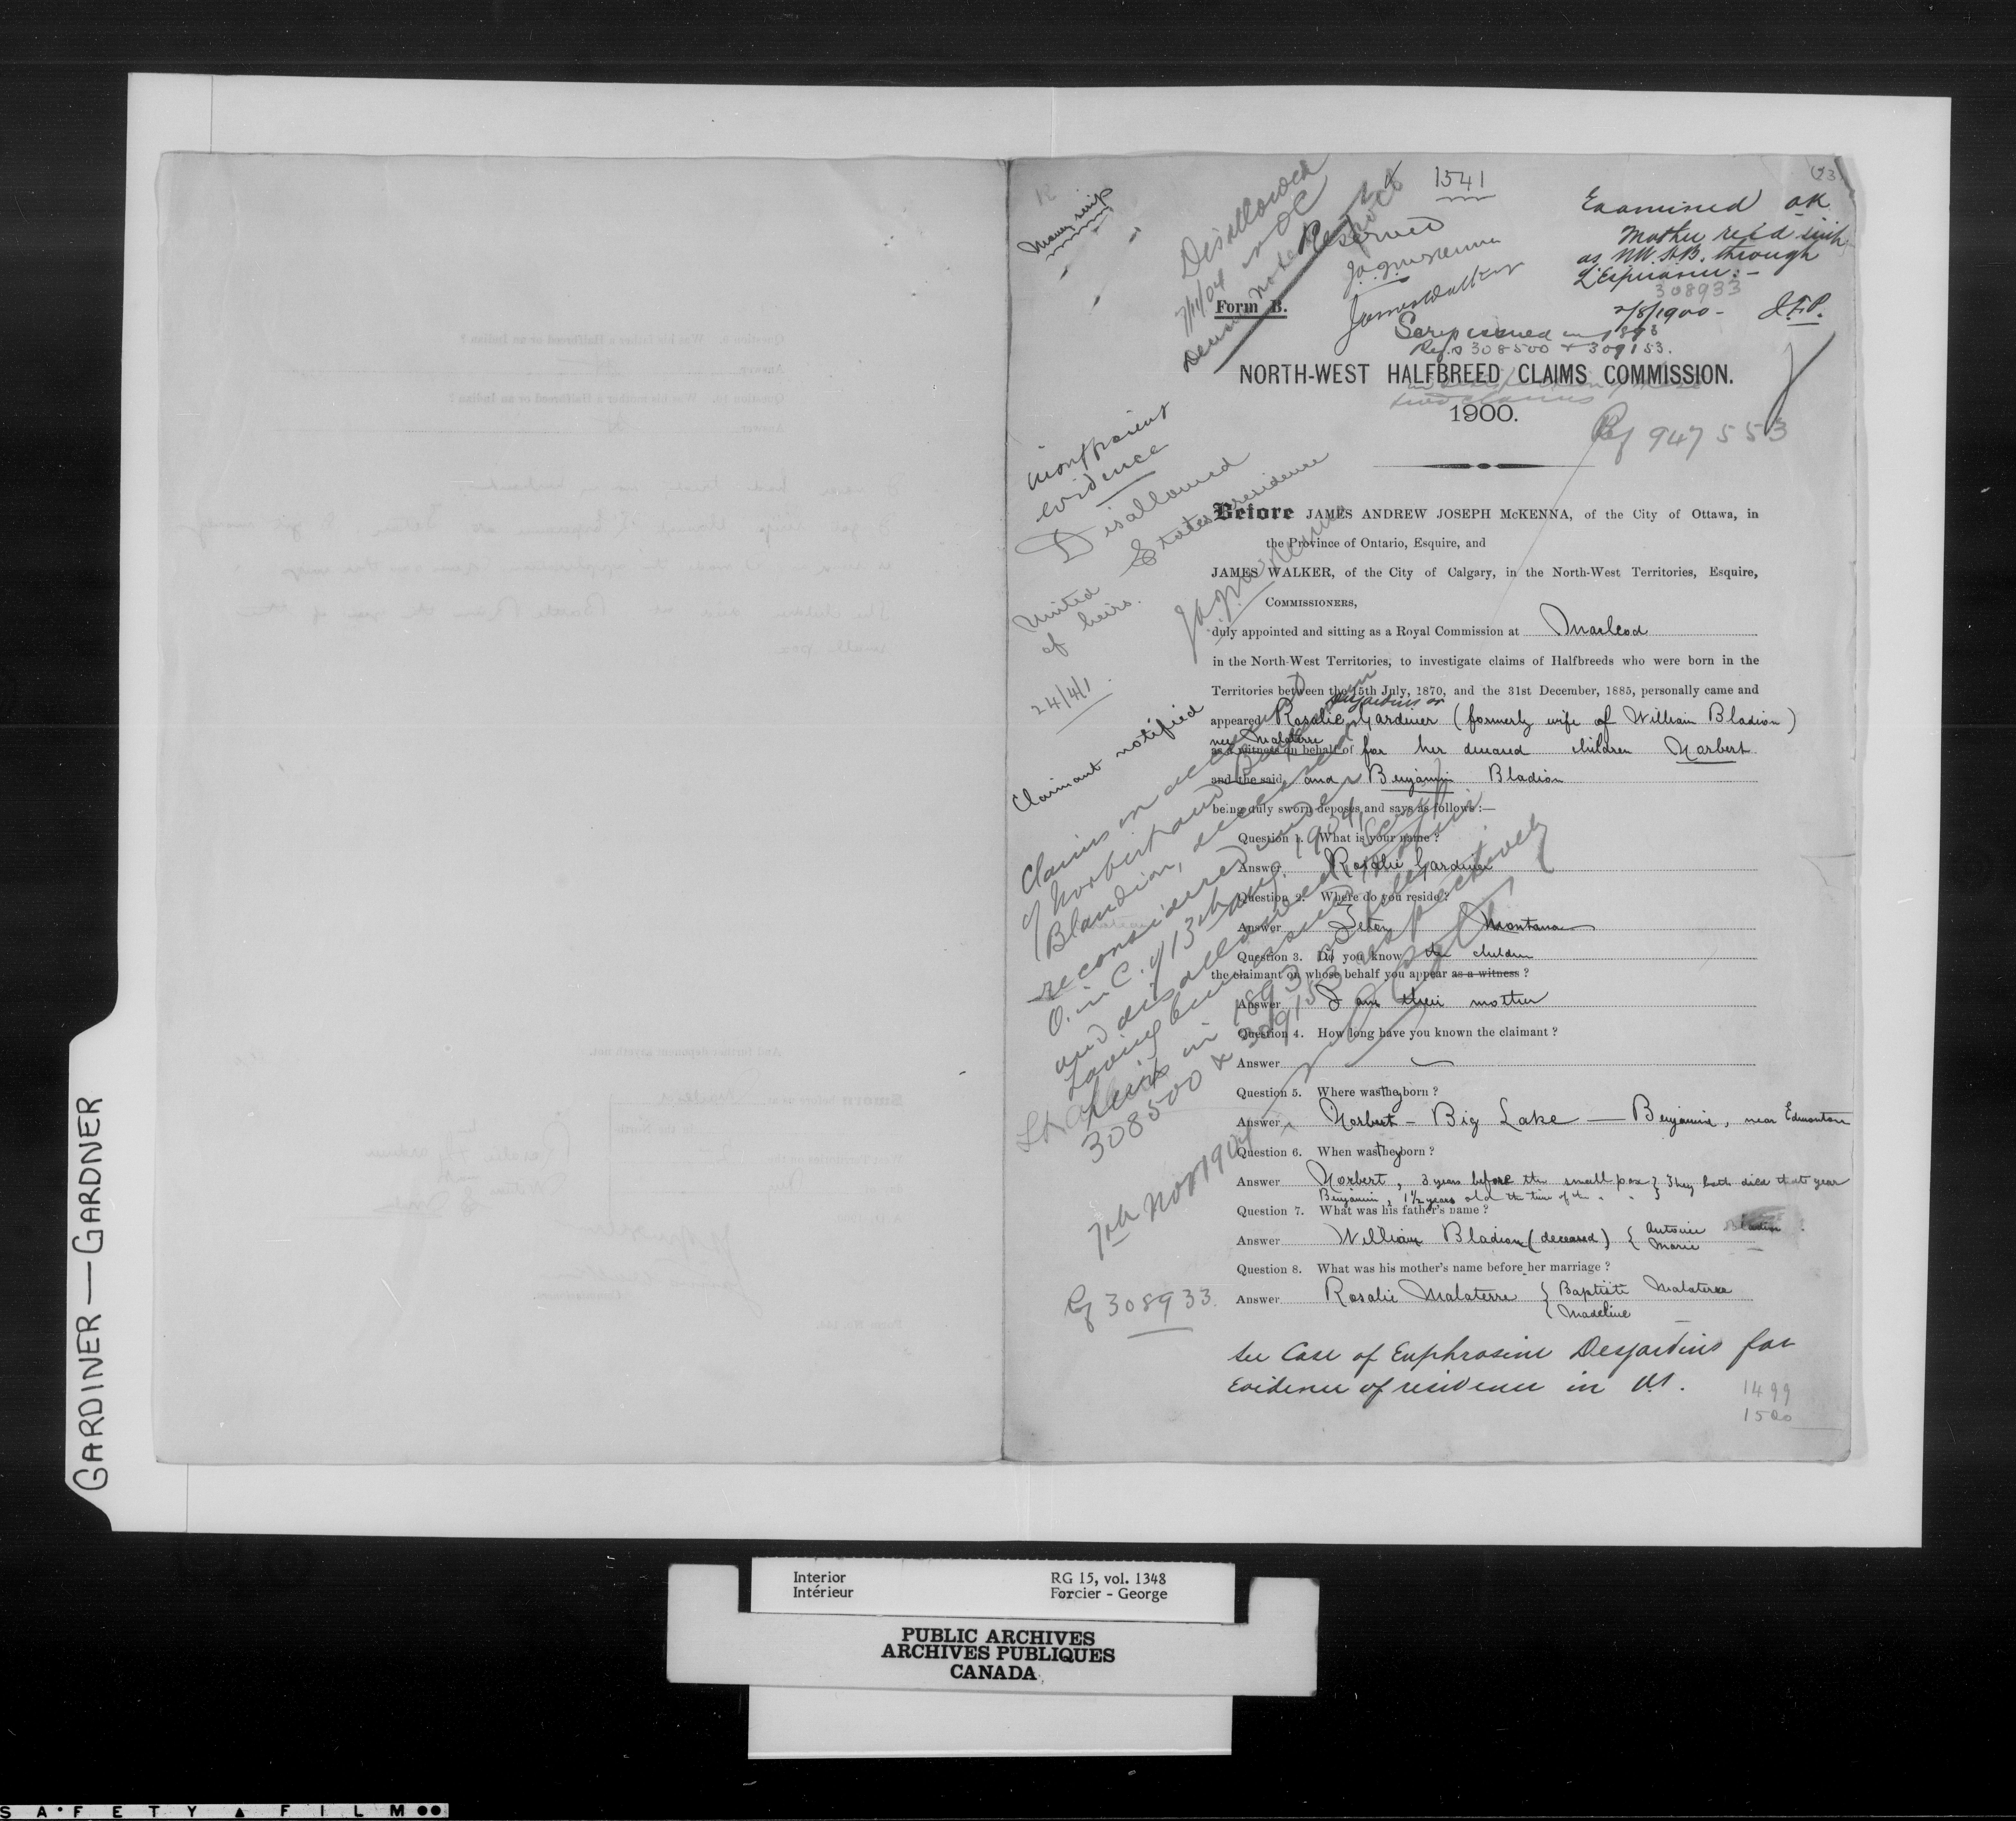 1541
(23)
Money scrip
Disallowed
7/11/04 NOC
Reserved
J.A.J. McKenna
James Walker
Examined OK
Mother rec'd scrip
as NW. H.B. through
L'Esperance. -
308933
2/8/1900 - J.E.P.
Form B.
Scrip issued in 1893
Refs 308500 & 309153.
NORTH-WEST HALFBREED CLAIMS COMMISSION.
1900.
Ref 947553
evidence
Disallowed
United States residence
of heirs.
J.A.J. McKenna
24/4/1
Claimant notified
Before JAMES ANDREW JOSEPH McKENNA, of the City of Ottawa, in
the Province of Ontario, Esquire, and
JAMES WALKER, of the City of Calgary, in the North-West Territories, Esquire,
COMMISSIONERS,
duly appointed and sitting as a Royal Commission at Macleod
in the North-West Territories, to investigate claims of Halfbreeds who were born in the
Territories between the 15th July, 1870, and the 31st December, 1885, personally came and
Desjardins or
appeared Rosalie Gardiner (formerly wife of William Bladion)
nee Malaterre
as a witness on behalf of for her deceased children Norbert
and the said and Benjamin Bladion
being duly sworn deposes and says as follows:—
Question 1. What is your name?
Answer Rosalie Gardiner
Question 2. Where do you reside?
Answer Teton Montana
Question 3. Do you know the children
the claimant on whose behalf you appear as a witness?
Answer I am their mother
Question 4. How long have you known the claimant?
Answer
Question 5. Where was they born?
Answer Norbert - Big Lake — Benjamin, near Edmonton
Question 6. When was they born?
Answer Norbert, 3 years before the small pox } They both died that year
Benjamin, 1½ years old the time of the " " }
Question 7. What was his father's name?
Answer William Bladion (deceased) { Antoine Bladion
Marie
Question 8. What was his mother's name before her marriage?
Answer Rosalie Malaterre { Baptiste Malaterre
{ Madeline
Claims on account
of Norbert and Benjamin
Blandion, deceased
reconsidered under
O. in C. of 13th Aug. 1904,
and disallowed Scrip
having been issued to their
heirs in 1893 on files
308500 & 309153 respectively
7th Nov 1904
Ref 308933.
See Case of Euphrosine Desjardins for
Evidence of residence in U.S.
1499
1500
GARDINER — GARDNER
Interior RG 15, vol. 1348
Intérieur Forcier - George
PUBLIC ARCHIVES
ARCHIVES PUBLIQUES
CANADA
SAFETY FILM